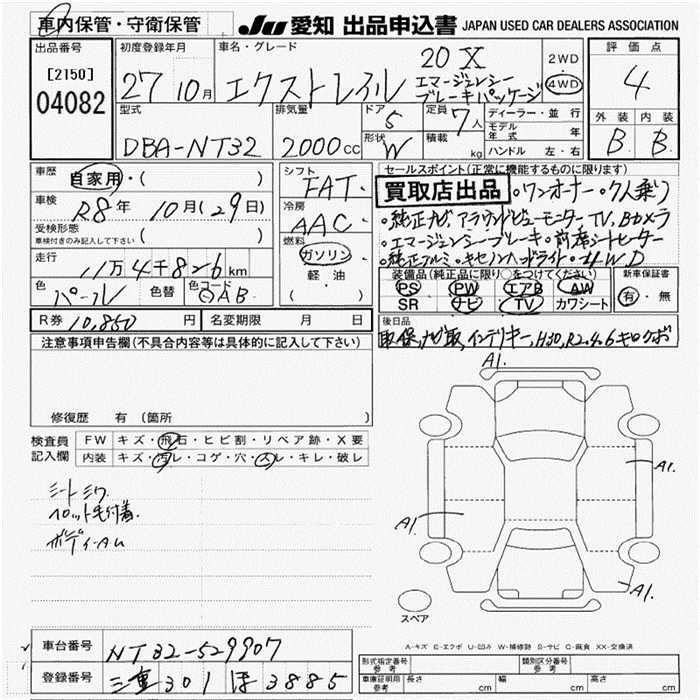 車内保管・守衛保管
JU 愛知 出品申込書 JAPAN USED CAR DEALERS ASSOCIATION
出品番号
[2150]
04082
初度登録年月
27 10月
車名・グレード
エクストレイル
20X
エマージェンシー
ブレーキパッケージ
2WD
・
4WD
評価点
4
外装 内装
B B
型式
DBA-NT32
排気量
2000cc
ドア
5
形状
W
定員
7人
積載
kg
ディーラー・並行
モデル年式 年
ハンドル 左・右
車歴
自家用・( )
車検
R8年 10月(29日)
受検形態
車検付きのみ記入して下さい ( )
走行
11万4千826km
色
パール
色替
色コード
QAB
シフト
FAT
冷房
AAC
燃料
ガソリン
・
軽油
( )
セールスポイント(正常に機能するものに限り)
買取店出品 ・ワンオーナー・7人乗り
・純正ナビ、アラウンドビューモニター TV, Bカメラ
・エマージェンシーブレーキ・前席シートヒーター
・純正アルミ・キセノンヘッドライト・4WD
装備品(純正品に限り○をつけてください)
PS PW エアB AW
SR ナビ TV カワシート
新車保証書
有・無
R券 10,850 円
名変期限 月 日
後日品
取保、ナビ取、インテリキー, H30,R2.4.6キロクボ
注意事項申告欄(不具合内容等は具体的に記入して下さい)
修復歴 有 (箇所 )
検査員
記入欄
FW キズ・飛石・ヒビ割・リペア跡・X要
内装 キズ・汚レ・コゲ・穴・スレ・キレ・破レ
シートシワ
ペット毛付着
ボディーAU
A1.
A1.
A1.
A1.
スペア
A-キズ E-エクボ U-凹み W-補修跡 S-サビ C-腐食 XX-交換済
車台番号
NT32-529907
登録番号
三重 301 ほ 3885
形式指定番号
参考
類別区分番号
参考
車庫証明用
参考
長さ cm 幅 cm 高さ cm